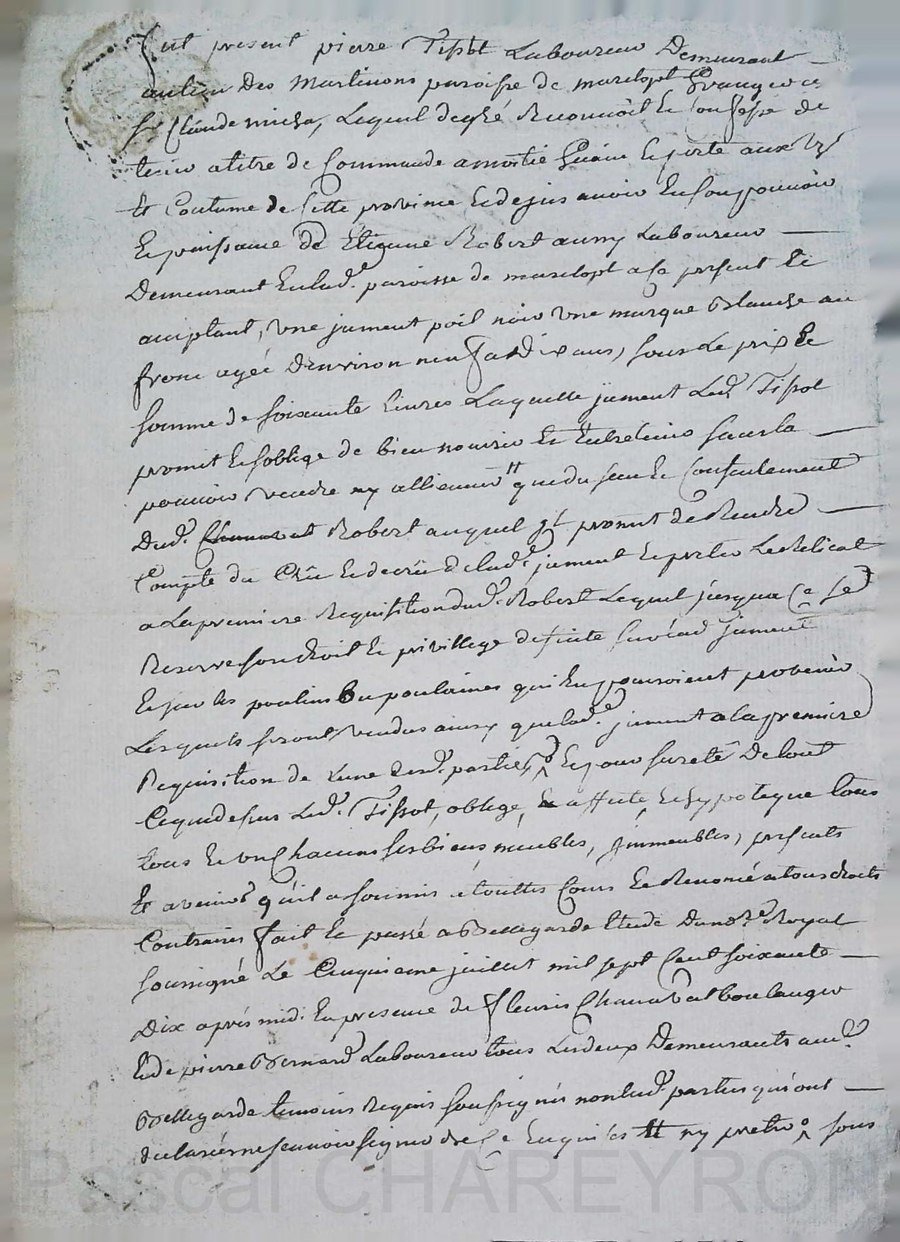 fut present pierre Tissot Laboureur Demeurant
au lieu des Martinons paroisse de marclopt granger de
Sr Claude micha, Lequel de gré Reconnoit et confesse de
tenir a titre de Commande a moitié Guain et perte aux Us
Et Coutume de Cette province et dejus avoir En son pouvoir
Et puissance de Etienne Robert aussy Laboureur
Demeurant En lade. paroisse de marclopt a ce present et
acceptant, une jument poil noir une marque Blanche au
fronc agée d'environ neuf a dix ans, sous Le prix et
somme de soixante livres Laquelle jument Led. Tissot
promit et s'oblige de bien nourrir Et Entretenir sans la
pouvoir vendre ny allienner que du sceu et Consentement
Dud. Robert auquel il promit de Rendre
Compte du Crû et decrû de lade. jument et porter Le Relicat
a La premiere Requisition dud. Robert Lequel jusqua Ce se
Reserve son droit et privillege de suite sur lad. jument
Et sur les poulins ou poulaines qui En pourroient provenir
Lesquels seront vendus ainsy que lade. jument a la premiere
Requisition de Lune desd. parties Et pour sureté De tout
Ce que dessus Led. Tissot, oblige, affecte, et hypoteque tous
tous et un Chacuns ses biens, meubles, immeubles, presents
Et avenir qu'il a soumis a touttes Cours et Renoncé a tous droits
Contraires fait et passé a Bellegarde Etude Du nore. Royal
soussigné Le Cinquieme juillet mil sept Cent soixante
Dix aprés midi En presence de fleuris Chanavat boulanger
Et de pierre Bernard Laboureur tous Les deux Demeurants aud.
Bellegarde temoins Requis soussignés non Lesd. parties qui ont
declaré ne scavoir signer de Ce Enquises ny sous
Pascal CHAREYRON